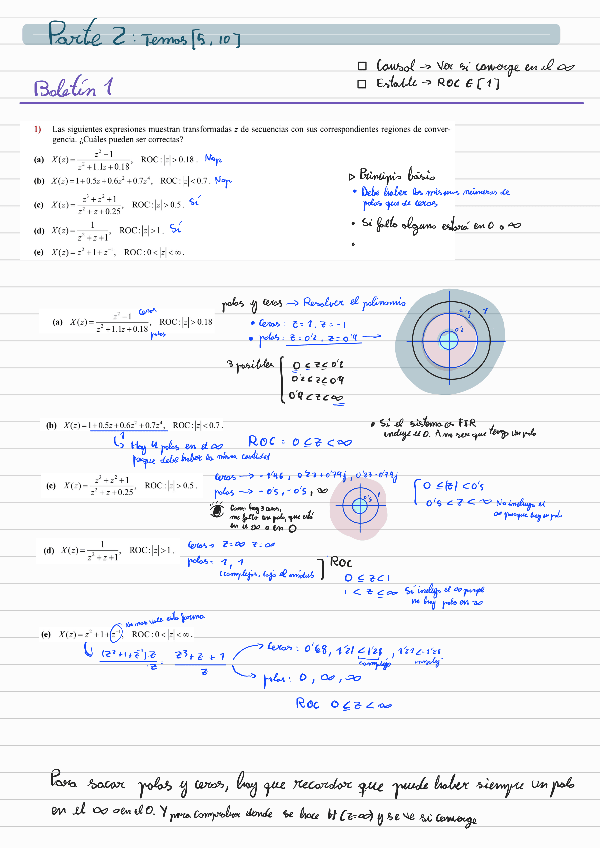 Parte 2: Temas [5, 10]
□ Causal → Ver si converge en el ∞
□ Estable → ROC ∈ [1]
Boletín 1
1) Las siguientes expresiones muestran transformadas z de secuencias con sus correspondientes regiones de conver-
gencia. ¿Cuáles pueden ser correctas?
(a) X(z) = (z² − 1)/(z² + 1.1z + 0.18), ROC: |z| > 0.18. Nop
(b) X(z) = 1 + 0.5z + 0.6z² + 0.7z⁴, ROC: |z| < 0.7. Nop
(c) X(z) = (z³ + z² + 1)/(z² + z + 0.25), ROC: |z| > 0.5. Sí
(d) X(z) = 1/(z² + z + 1), ROC: |z| > 1. Sí
(e) X(z) = z² + 1 + z⁻¹, ROC: 0 < |z| < ∞.
▷ Principio básico
• Debe haber los mismos números de
polos que de ceros
• Si falta alguno estará en 0 o ∞
•
polos y ceros → Resolver el polinomio
(a) X(z) = (z² − 1)/(z² − 1.1z + 0.18), ROC: |z| > 0.18
ceros
polos
• Ceros: z = 1, z = −1
• polos: z = 0'2, z = 0'9 →
0'9 1
0'2
3 posibles { 0 ≤ z ≤ 0'2
0'2 < z < 0'9
0'9 < z < ∞
(b) X(z) = 1 + 0.5z + 0.6z² + 0.7z⁴, ROC: |z| < 0.7.
↳ Hay 4 polos en el ∞
porque debe haber la misma cantidad
ROC = 0 ≤ z < ∞
• Si el sistema es FIR
incluye el 0. A no ser que tenga un polo
(c) X(z) = (z³ + z² + 1)/(z² + z + 0.25), ROC: |z| > 0.5.
Ceros → −1'46, 0'23+0'79j, 0'23−0'79j
polos → −0'5, −0'5, ∞
Como hay 3 ceros,
me falta un polo, que está
en el ∞ o en 0
0'5 1
{ 0 ≤ |z| < 0'5
0'5 < z < ∞ No incluye el
∞ porque hay un polo
(d) X(z) = 1/(z² + z + 1), ROC: |z| > 1.
Ceros → z = ∞ z = ∞
polos = 1, 1
(complejos, cojo el módulo)
] ROC
0 ≤ z < 1
1 < z ≤ ∞ Sí incluye el ∞ porque
no hay polo en ∞
No nos vale esta forma
(e) X(z) = z² + 1 + z⁻¹, ROC: 0 < |z| < ∞.
↳ (z² + 1 + z⁻¹)·z / z = (z³ + z + 1)/z
Ceros: 0'68, 1'21 <1'28, 1'21 <-1'28
complejo
polos: 0, ∞, ∞
ROC 0 ≤ z < ∞
Para sacar polos y ceros, hay que recordar que puede haber siempre un polo
en el ∞ o en el 0. Y para comprobar donde se hace H(z=∞) y se ve si converge